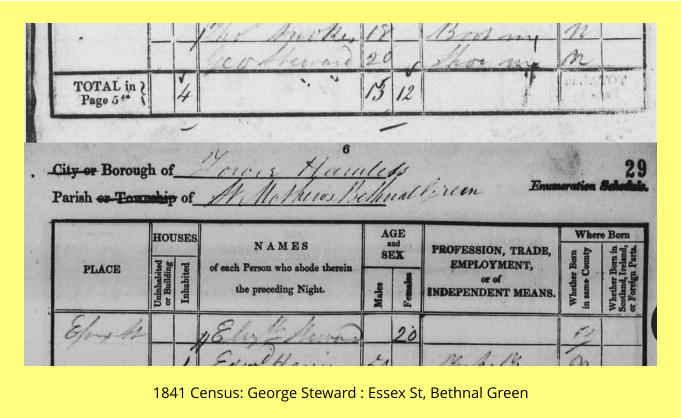 Geo Steward 20 Shoe m N
TOTAL in
Page 5
4 15 12
6
City or Borough of Tower Hamlets
29
Parish or Township of St Mathews Bethnal Green
Enumeration Schedule.
PLACE
HOUSES
Uninhabited or Building
Inhabited
NAMES
of each Person who abode therein
the preceding Night.
AGE
and
SEX
Males
Females
PROFESSION, TRADE,
EMPLOYMENT,
or of
INDEPENDENT MEANS.
Where Born
Whether Born in same County
Whether Born in Scotland, Ireland, or Foreign Parts.
Essex St Elizth Steward 20
1841 Census: George Steward : Essex St, Bethnal Green